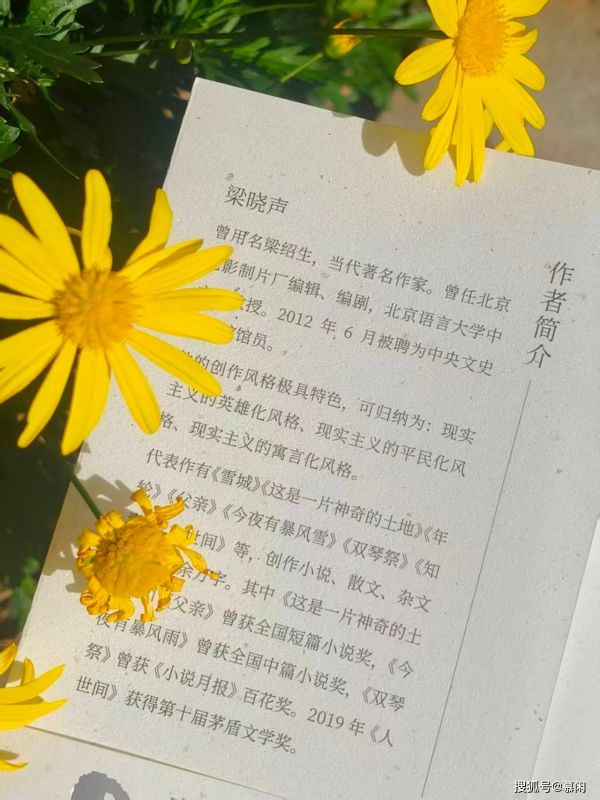 作者简介
梁晓声
曾用名梁绍生，当代著名作家。曾任北京
影制片厂编辑、编剧，北京语言大学中
授。2012年6月被聘为中央文史
馆员。
的创作风格极具特色，可归纳为：现实
主义的英雄化风格、现实主义的平民化风
格、现实主义的寓言化风格。
代表作有《雪城》《这是一片神奇的土地》《年
轮》《父亲》《今夜有暴风雪》《双琴祭》《知
世间》等，创作小说、散文、杂文
余万字。其中《这是一片神奇的土
父亲》曾获全国短篇小说奖，《今
夜有暴风雨》曾获全国中篇小说奖，《双琴
祭》曾获《小说月报》百花奖。2019年《人
世间》获得第十届茅盾文学奖。
搜狐号@慕闲